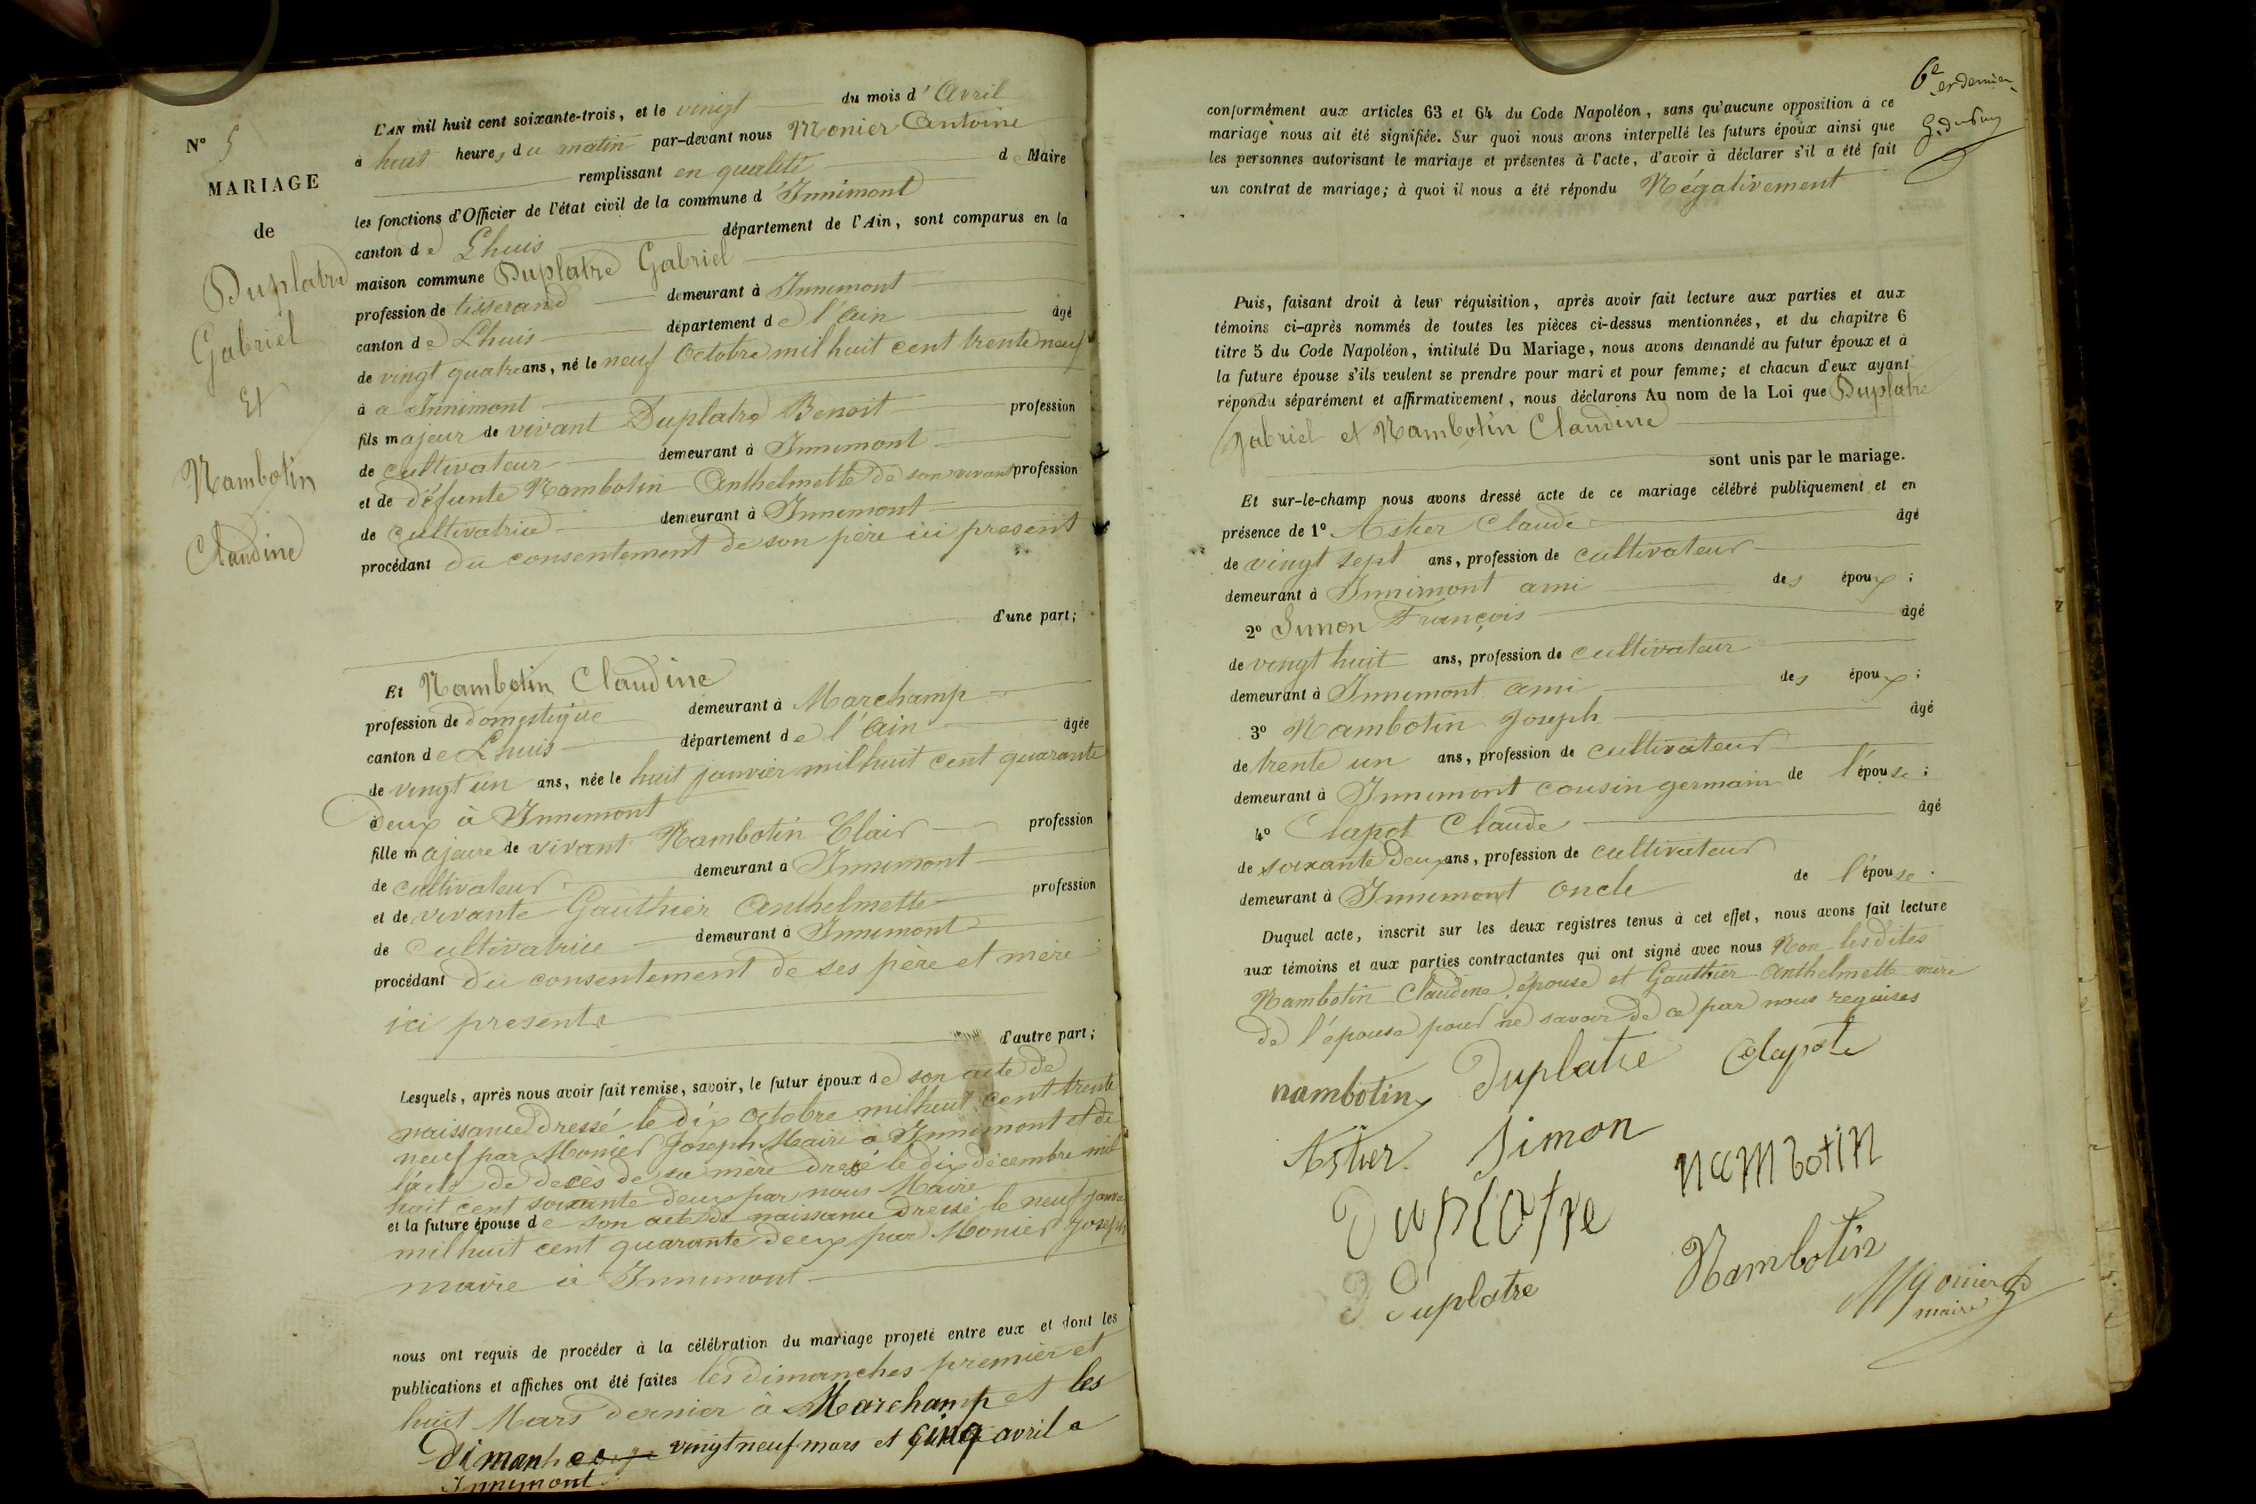 N° 5
MARIAGE
de
Duplatre
Gabriel
Et
Nambotin
Claudine
L'AN mil huit cent soixante-trois, et le vingt du mois d'Avril
à huit heures du matin par-devant nous Monier Antoine
remplissant en qualité de Maire
les fonctions d'Officier de l'état civil de la commune d'Innimont
canton de Lhuis département de l'Ain, sont comparus en la
maison commune Duplatre Gabriel
profession de tisserand demeurant à Innimont
canton de Lhuis département de l'Ain âgé
de vingt quatre ans, né le neuf Octobre mil huit cent trente neuf
à a Innimont
fils majeur de vivant Duplatre Benoit profession
de cultivateur demeurant à Innimont
et de défunte Nambotin Anthelmette de son vivant profession
de cultivatrice demeurant à Innimont
procédant du consentement de son père ici present
d'une part;
Et Nambotin Claudine
profession de domestique demeurant à Marchamp
canton de Lhuis département de l'Ain âgée
de vingt un ans, née le huit janvier mil huit cent quarante
à deux à Innimont
fille majeure de vivant Nambotin Clair profession
de cultivateur demeurant à Innimont
et de vivante Gauthier Anthelmette profession
de Cultivatrice demeurant à Innimont
procédant du consentement de ses père et mère
ici presents
d'autre part;
Lesquels, après nous avoir fait remise, savoir, le futur époux de son acte de
naissance dressé le dix octobre mil huit cent trente
neuf par Monier Joseph Maire à Innimont et de
l'acte de decès de sa mère dressé le dix décembre mil
huit cent soixante deux par nous Maire
et la future épouse de son acte de naissance dressé le neuf janvier
mil huit cent quarante deux par Monier Joseph
maire à Innimont
nous ont requis de procéder à la célébration du mariage projeté entre eux et dont les
publications et affiches ont été faites les dimanches premier et
huit Mars dernier à Marchamp et les
Dimanche vingt neuf mars et cinq avril a
Innimont
6e et dernier
conformément aux articles 63 et 64 du Code Napoléon, sans qu'aucune opposition à ce
mariage nous ait été signifiée. Sur quoi nous avons interpellé les futurs époux ainsi que
les personnes autorisant le mariage et présentes à l'acte, d'avoir à déclarer s'il a été fait
un contrat de mariage; à quoi il nous a été répondu Négativement
Puis, faisant droit à leur réquisition, après avoir fait lecture aux parties et aux
témoins ci-après nommés de toutes les pièces ci-dessus mentionnées, et du chapitre 6
titre 5 du Code Napoléon, intitulé Du Mariage, nous avons demandé au futur époux et à
la future épouse s'ils veulent se prendre pour mari et pour femme; et chacun d'eux ayant
répondu séparément et affirmativement, nous déclarons Au nom de la Loi que Duplatre
Gabriel et Nambotin Claudine
sont unis par le mariage.
Et sur-le-champ nous avons dressé acte de ce mariage célébré publiquement et en
présence de 1° Astier Claude âgé
de vingt sept ans, profession de cultivateur
demeurant à Innimont ami des époux;
2° Simon François âgé
de vingt huit ans, profession de cultivateur
demeurant à Innimont ami des époux;
3° Nambotin Joseph âgé
de trente un ans, profession de cultivateur
demeurant à Innimont cousin germain de l'épouse;
4° Clapot Claude âgé
de soixante deux ans, profession de cultivateur
demeurant à Innimont oncle de l'épouse.
Duquel acte, inscrit sur les deux registres tenus à cet effet, nous avons fait lecture
aux témoins et aux parties contractantes qui ont signé avec nous Non lesdites
Nambotin Claudine épouse et Gauthier Anthelmette mère
de l'épouse pour ne savoir de ce par nous requises
nambotin Duplatre Clapot
Astier Simon
Duplatre nambotin
Duplatre Nambotin Monier
maire